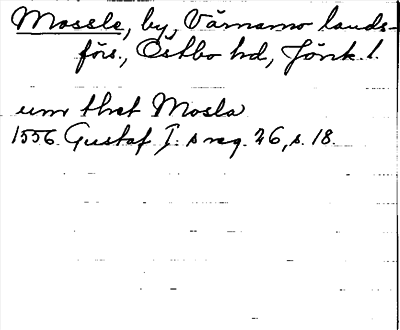 Mossle, by, Värnamo lands-
förs., Östbo hd, Jönk. l.
um thet Mosla
1556. Gustaf I:s reg. 26, s. 18.